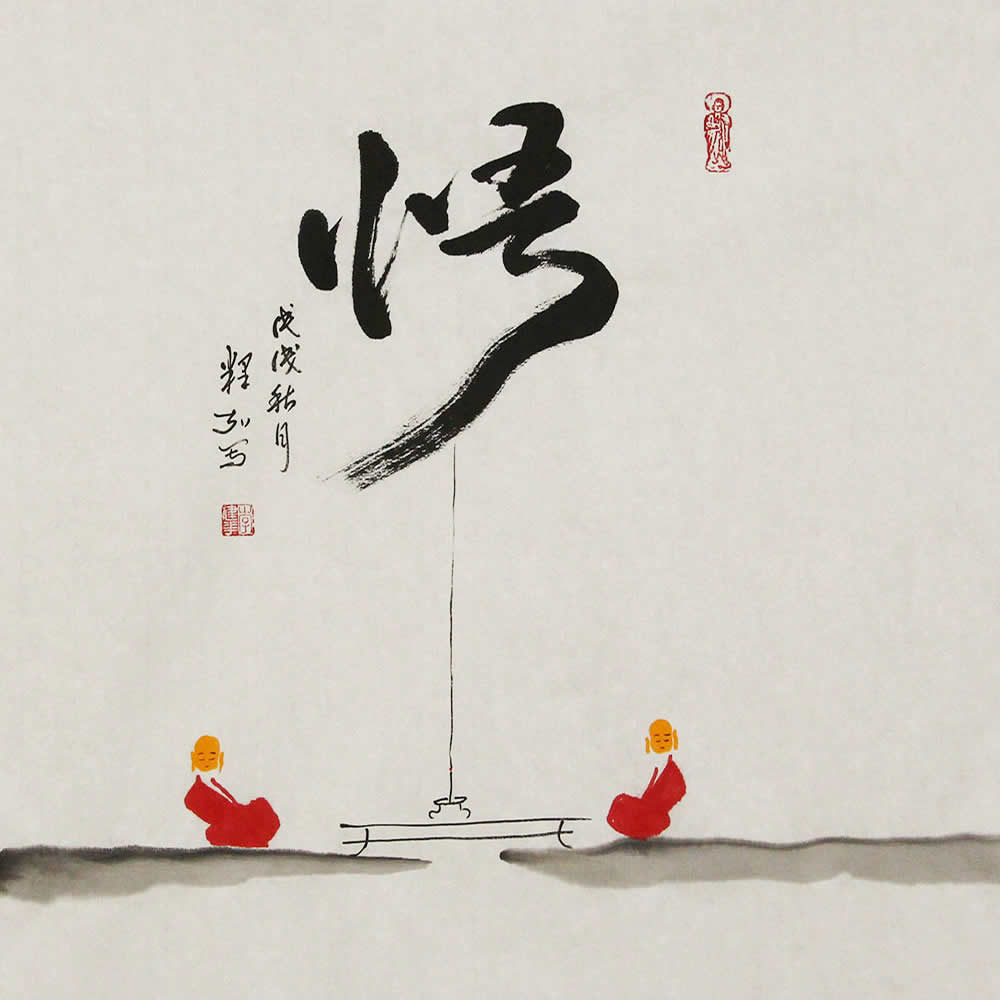 悟
戊戌秋月
释弘写